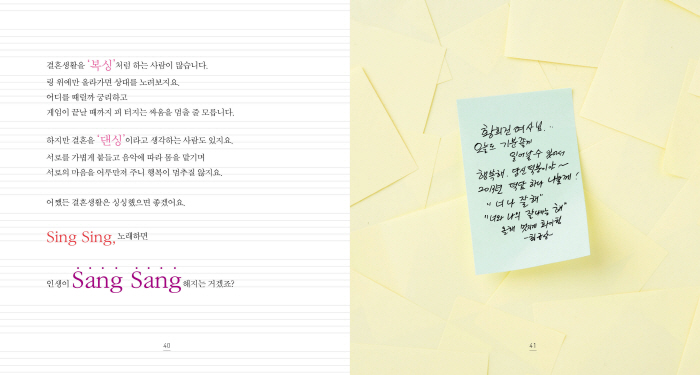 결혼생활을 '복싱'처럼 하는 사람이 많습니다.
링 위에만 올라가면 상대를 노려보지요.
어디를 때릴까 궁리하고
게임이 끝날 때까지 피 터지는 싸움을 멈출 줄 모릅니다.
하지만 결혼을 '댄싱'이라고 생각하는 사람도 있지요.
서로를 가볍게 붙들고 음악에 따라 몸을 맡기며
서로의 마음을 어루만져 주니 행복이 멈추질 않지요.
어쨌든 결혼생활은 싱싱했으면 좋겠어요.
Sing Sing, 노래하면
인생이 Sang Sang해지는 거겠죠?
40
오늘도 기분좋게
일어날 수 있어서
행복해.
"너나 잘해"
41